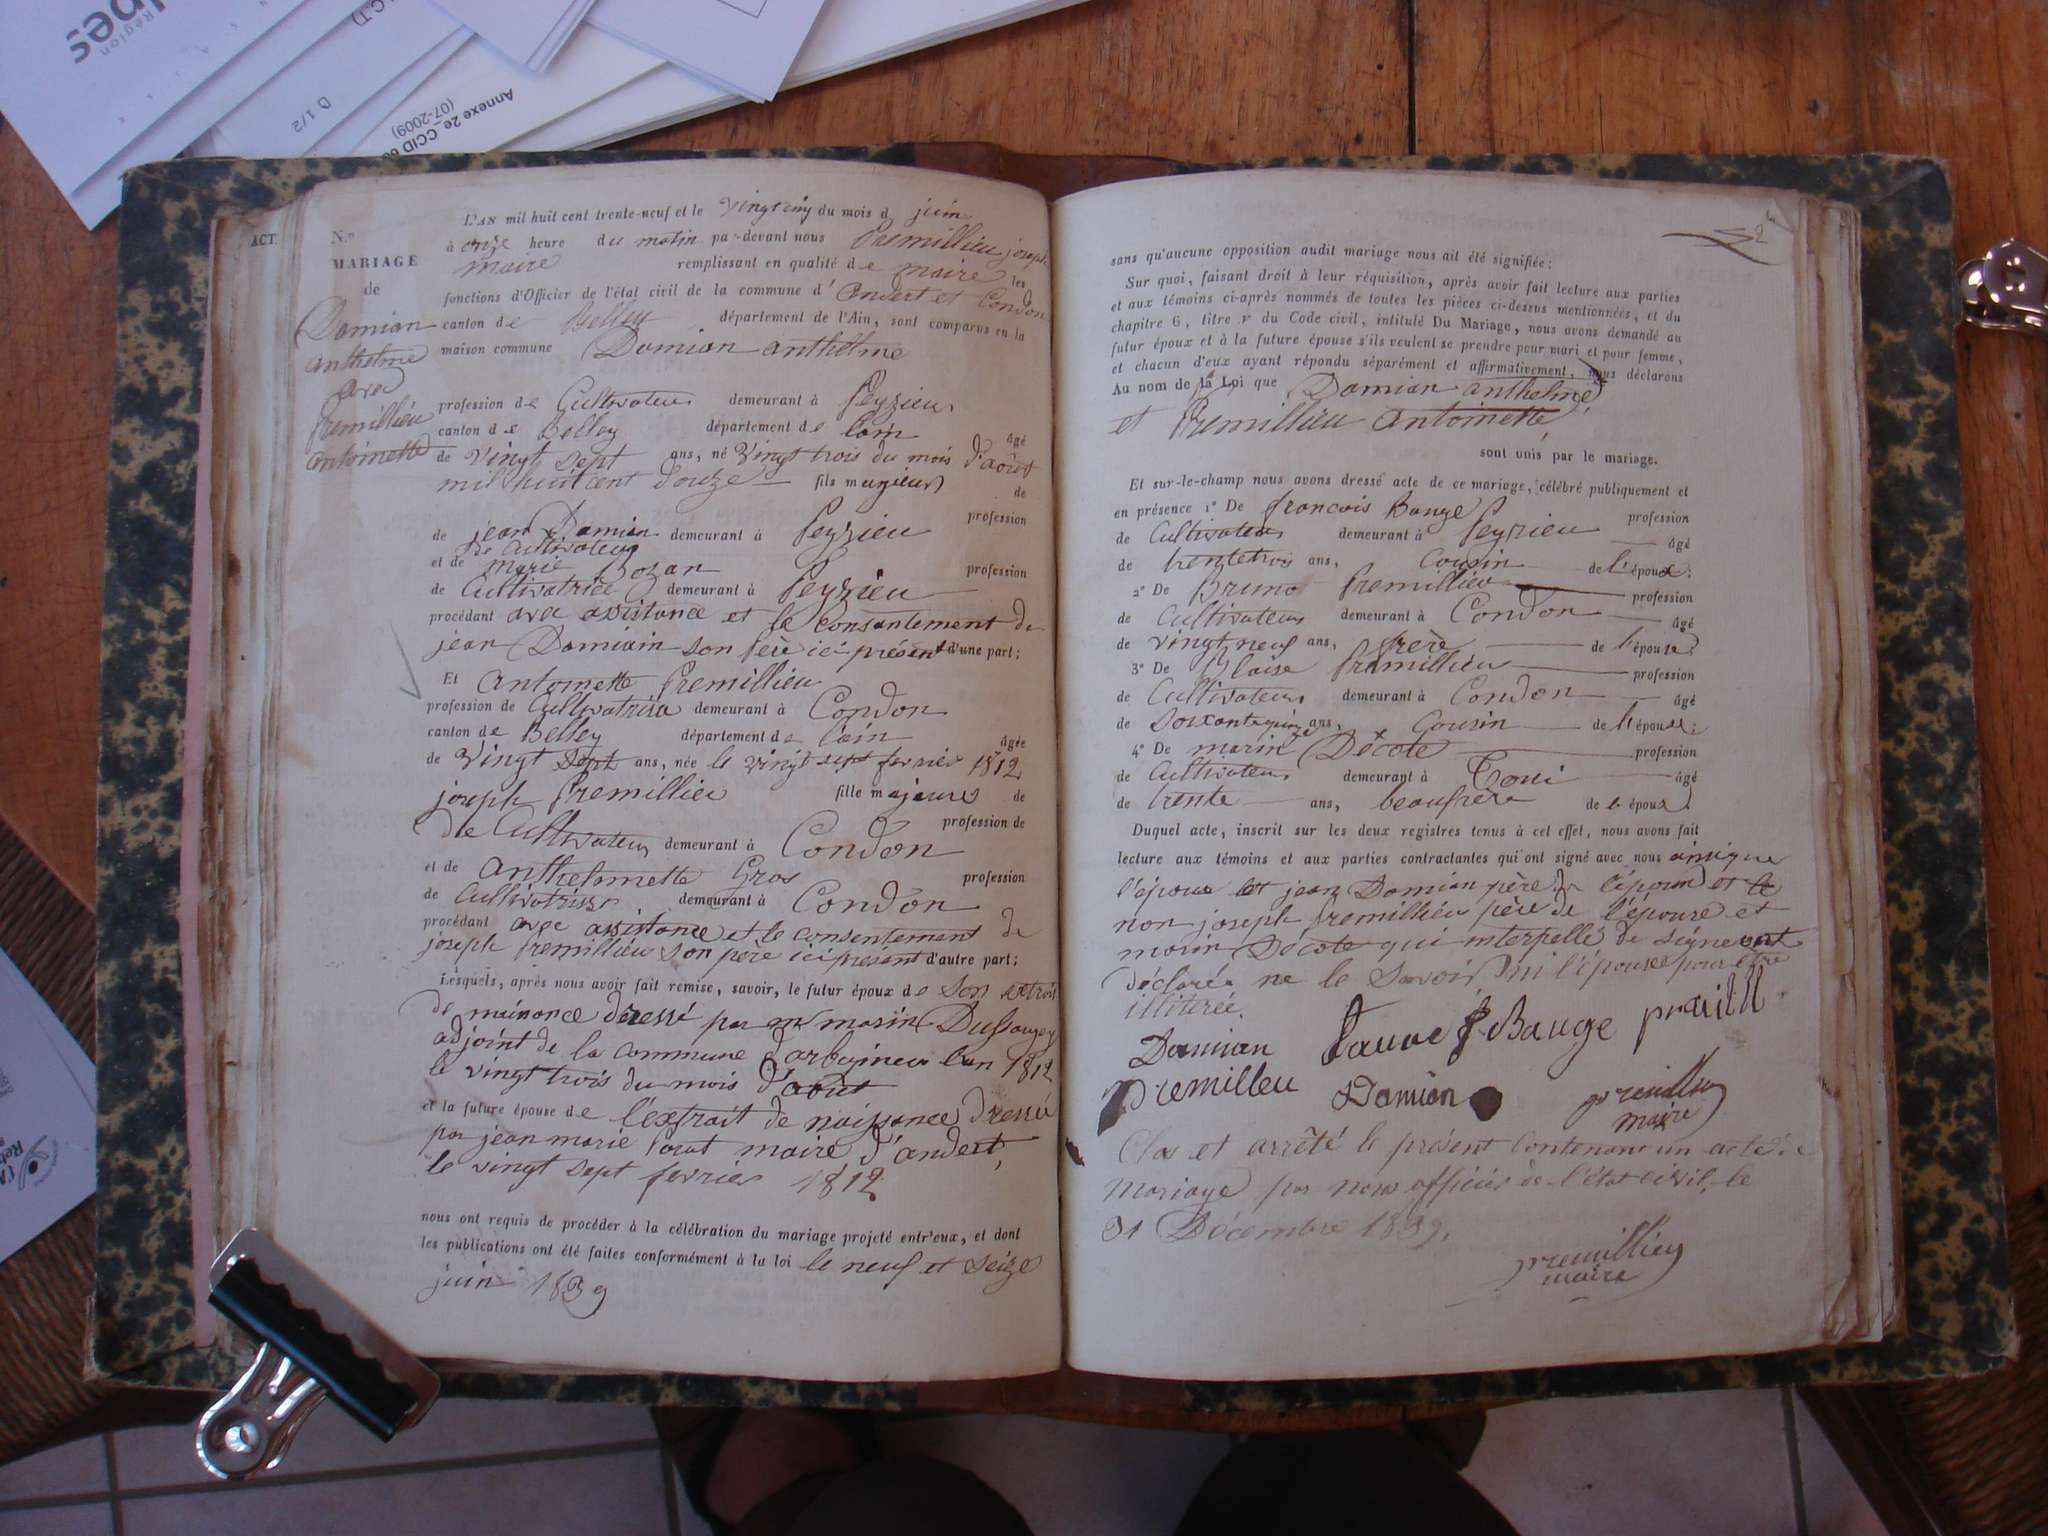 Région
D 1/2
Annexe 2e CCID
(07-2009)
ACT.
N.º
MARIAGE
de
Damian
anthelme
avec
premillieu
antoinette
L'AN mil huit cent trente-neuf et le vingt cinq du mois d juin
à onze heure du matin par-devant nous premillieu joseph
maire remplissant en qualité de maire les
fonctions d'Officier de l'état civil de la commune d'andert et Condon
canton de Belley département de l'Ain, sont comparus en la
maison commune Damian anthelme
profession de Cultivateur demeurant à peyzieu
canton de Belley département de lain âgé
de vingt sept ans, né vingt trois du mois d'août
mil huit cent douze fils majeur de
de jean Damian demeurant à peyzieu profession
de Cultivateur
et de marie Bozan profession
de Cultivatrice demeurant à peyzieu
procédant avec assistance et le consantement de
jean Damiain son père ici présent d'une part;
Et antoinette premillieu
profession de Cultivatrice demeurant à Condon
canton de Belley département de lain âgée
de vingt sept ans, née le vingt sept fevrier 1812
joseph premillieu fille majeure de
de Cultivateur demeurant à Condon profession de
et de anthelmette Gros profession
de Cultivatrice demeurant à Condon
procédant avec assistance et le consentement de
joseph premillieu son père ici present d'autre part;
Lesquels, après nous avoir fait remise, savoir, le futur époux de son extrait
de naissance dressé par mr marin Dufsaugey
adjoint de la commune d'arbignieu l'an 1812
le vingt trois du mois d'août
et la future épouse de l'extrait de naissance dressé
par jean marie maire d'andert,
le vingt sept fevrier 1812
nous ont requis de procéder à la célébration du mariage projeté entr'eux, et dont
les publications ont été faites conformément à la loi le neuf et seize
juin 1839
2
sans qu'aucune opposition audit mariage nous ait été signifiée;
Sur quoi, faisant droit à leur réquisition, après avoir fait lecture aux parties
et aux témoins ci-après nommés de toutes les pièces ci-dessus mentionnées, et du
chapitre 6, titre v du Code civil, intitulé Du Mariage, nous avons demandé au
futur époux et à la future épouse s'ils veulent se prendre pour mari et pour femme,
et chacun d'eux ayant répondu séparément et affirmativement, nous déclarons
Au nom de la Loi que Damian anthelme
et premillieu antoinette
sont unis par le mariage.
Et sur-le-champ nous avons dressé acte de ce mariage, célébré publiquement et
en présence 1º De francois Bauge profession
de Cultivateur demeurant à peyzieu âgé
de trentetrois ans, Cousin de l'époux;
2º De Bruno premillieu profession
de Cultivateur demeurant à Condon âgé
de vingt neuf ans, frère de l'épouse;
3º De Blaise premillieu profession
de Cultivateur demeurant à Condon âgé
de soixantequinze ans, Cousin de l'épouse;
4º De marin Décote profession
de Cultivateur demeurant à âgé
de trente ans, beaufrère de l'époux.
Duquel acte, inscrit sur les deux registres tenus à cet effet, nous avons fait
lecture aux témoins et aux parties contractantes qui ont signé avec nous ainsi que
l'époux et jean Damian père de l'époux et
non joseph premillieu père de l'épouse et
marin Décote qui interpellé de signé ont
déclarés ne le savoir ni l'épouse pour être
illiterée.
Damian F Bauge
premilleu Damian premillieu
maire
Clos et arrêté le présent contenant un acte de
mariage par nous officier de l'état civil, le
31 Décembre 1839.
premillieu
maire